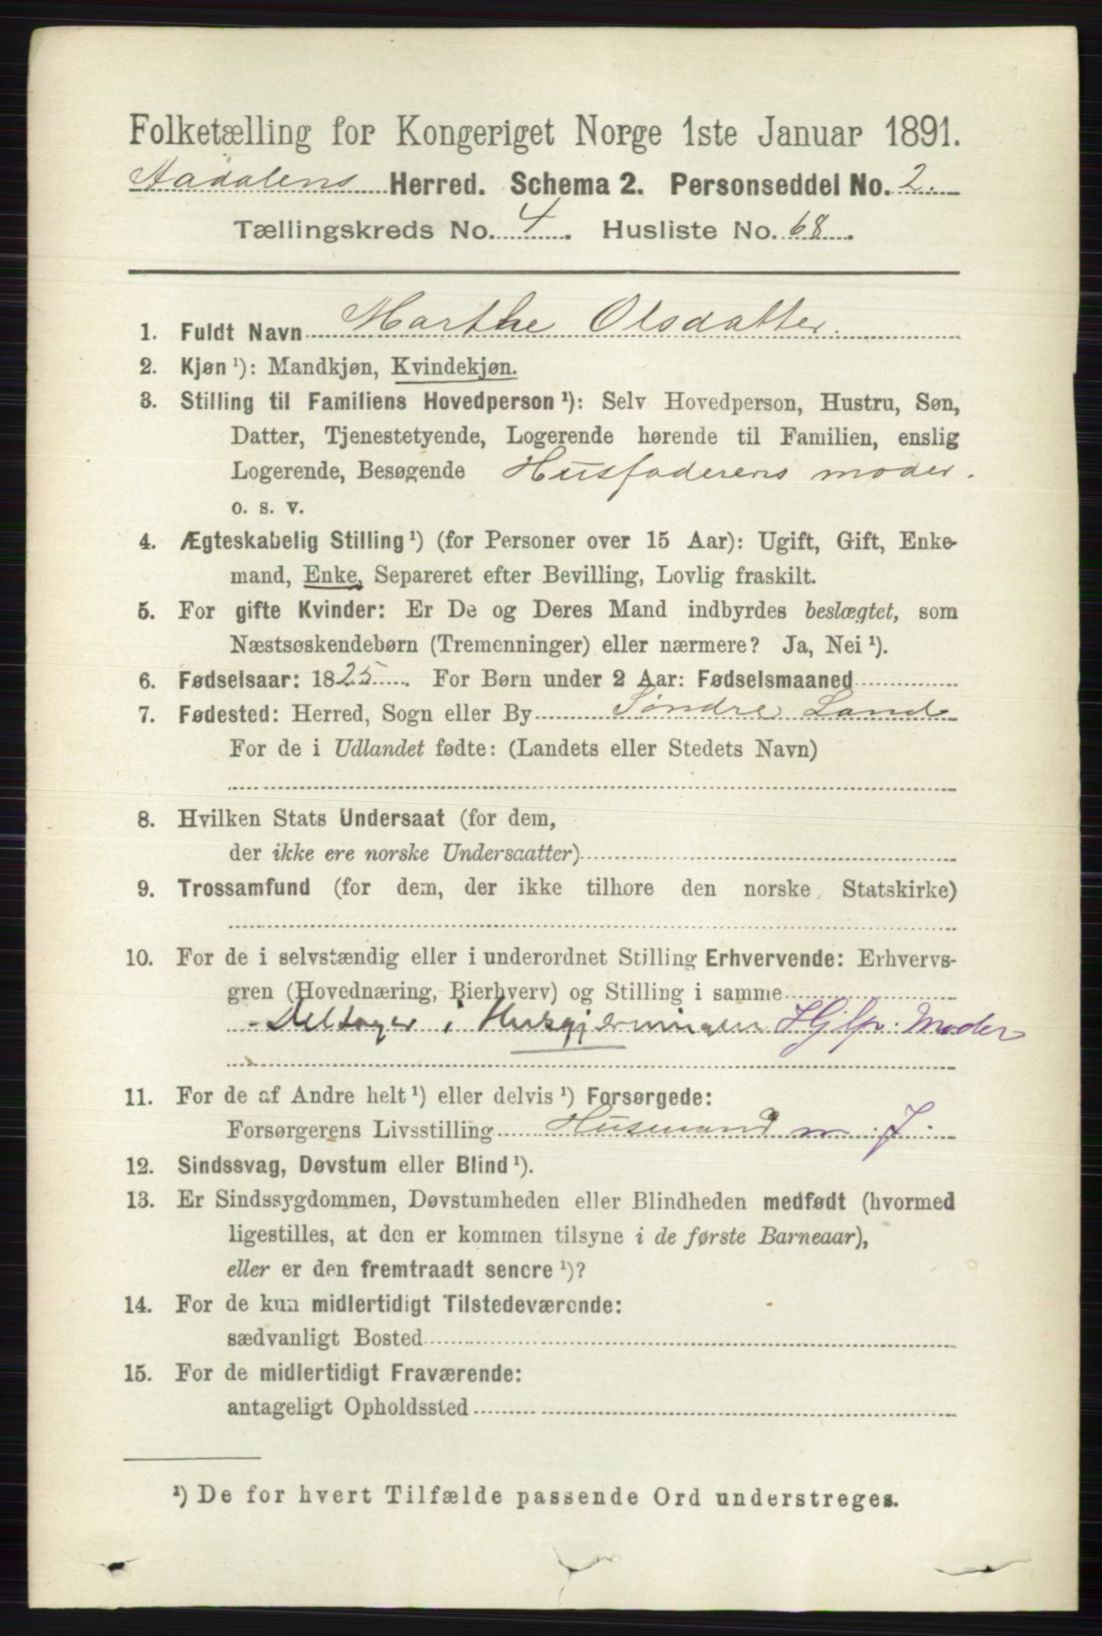 Folketælling for Kongeriget Norge 1ste Januar 1891.
Aadalens Herred. Schema 2. Personseddel No. 2.
Tællingskreds No. 4. Husliste No. 68.
1. Fuldt Navn Marthe Olsdatter.
2. Kjøn ¹): Mandkjøn, Kvindekjøn.
3. Stilling til Familiens Hovedperson ¹): Selv Hovedperson, Hustru, Søn,
Datter, Tjenestetyende, Logerende hørende til Familien, enslig
Logerende, Besøgende Husfaderens moder.
o. s. v.
4. Ægteskabelig Stilling ¹) (for Personer over 15 Aar): Ugift, Gift, Enke-
mand, Enke, Separeret efter Bevilling, Lovlig fraskilt.
5. For gifte Kvinder: Er De og Deres Mand indbyrdes beslægtet, som
Næstsøskendebørn (Tremenninger) eller nærmere? Ja, Nei ¹).
6. Fødselsaar: 1825. For Børn under 2 Aar: Fødselsmaaned
7. Fødested: Herred, Sogn eller By Søndre Land
For de i Udlandet fødte: (Landets eller Stedets Navn)
8. Hvilken Stats Undersaat (for dem,
der ikke ere norske Undersaatter)
9. Trossamfund (for dem, der ikke tilhøre den norske Statskirke)
10. For de i selvstændig eller i underordnet Stilling Erhvervende: Erhvervs-
gren (Hovednæring, Bierhverv) og Stilling i samme
Deltager i Husgjerningen Hjlp. Moder
11. For de af Andre helt ¹) eller delvis ¹) Forsørgede:
Forsørgerens Livsstilling Husmand m. J.
12. Sindssvag, Døvstum eller Blind ¹).
13. Er Sindssygdommen, Døvstumheden eller Blindheden medfødt (hvormed
ligestilles, at den er kommen tilsyne i de første Barneaar),
eller er den fremtraadt senere ¹)?
14. For de kun midlertidigt Tilstedeværende:
sædvanligt Bosted
15. For de midlertidigt Fraværende:
antageligt Opholdssted
¹) De for hvert Tilfælde passende Ord understreges.